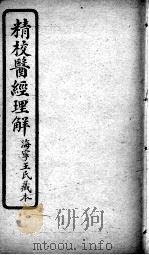 精校醫經理解
海寧王氏藏本
www.toutu88.com